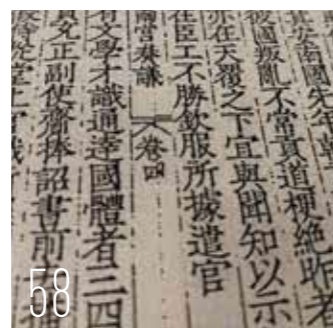 安南國
彼國叛亂不常貢道梗絕昨者
亦在天覆之下宜與聞知以示
在臣工不勝欽服所據遣官
南宮奏議 卷四
有文學才識通達國體者三四
員充正副使齎捧詔書前
堂上官
58